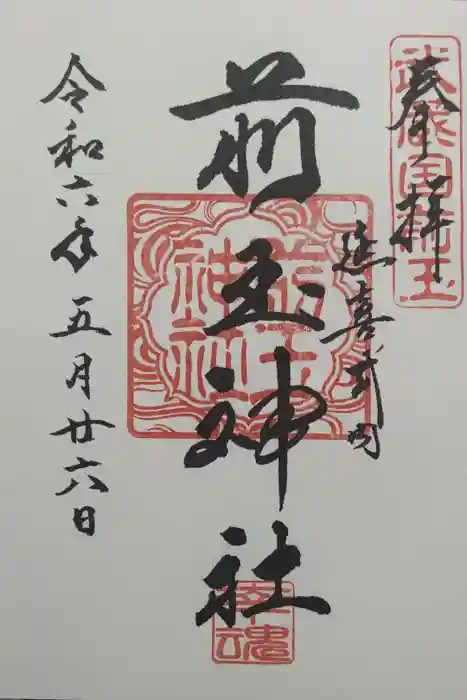 奉拝
武蔵国埼玉
延喜式内
前玉神社
前玉神社
幸魂
令和六年五月廿六日